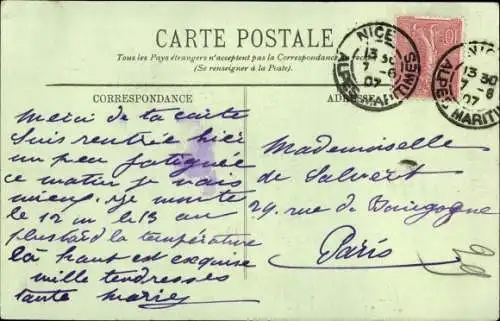 CARTE POSTALE
Tous les Pays étrangers n'acceptent pas la Correspondance au recto
(Se renseigner à la Poste.)
NICE
13 30
7 -6
07
ALPES MARITIMES
NICE
13 30
7 -6
07
ALPES MARITIMES
10
CORRESPONDANCE
Merci de ta carte
suis rentrée hier
un peu fatiguée
ce matin je vais
mieux. Je monte
le 12 ou le 13 au
plus tard la température
là haut est exquise
mille tendresses
tante Marie
ADRESSE
Mademoiselle
de Salvert
29. rue de Bourgogne
Paris